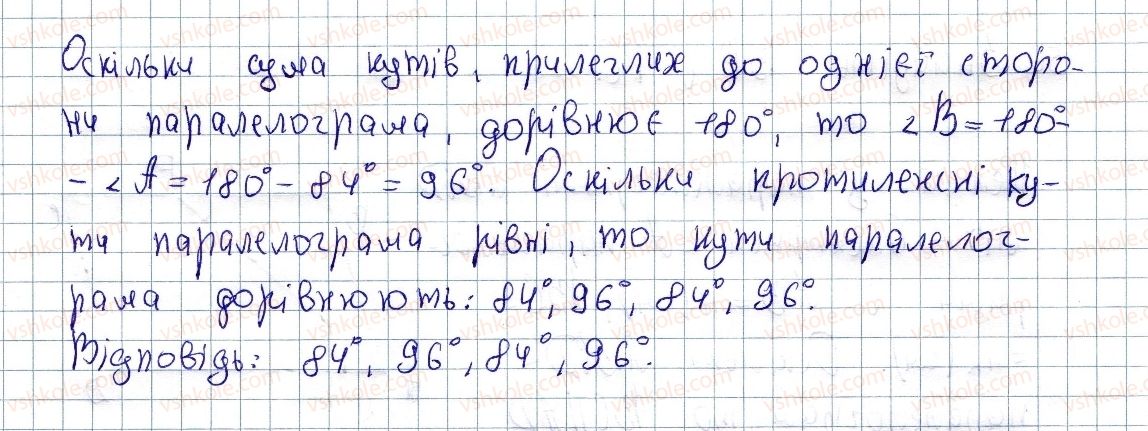 Оскільки сума кутів, прилеглих до однієї сторо-
ни паралелограма, дорівнює 180°, то ∠B = 180° -
- ∠A = 180° - 84° = 96°. Оскільки протилежні ку-
ти паралелограма рівні, то кути паралелог-
рама дорівнюють: 84°, 96°, 84°, 96°.
Відповідь: 84°, 96°, 84°, 96°.